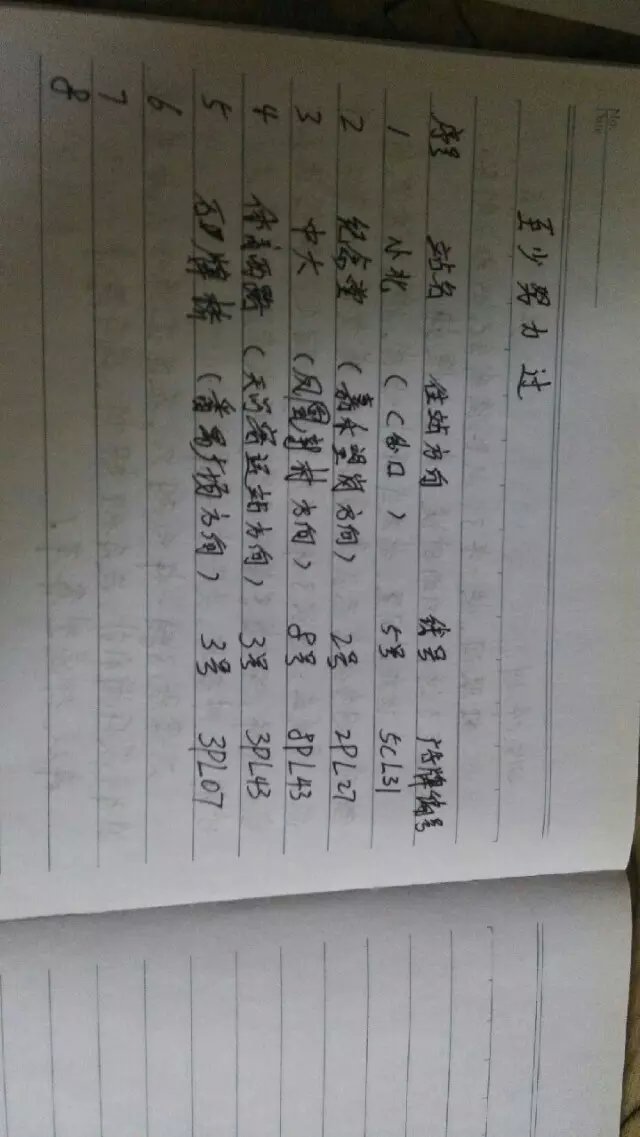 至少努力过
序号 站名 往站方向 线号 广告牌编号
1 小北 (C出口) 5号 5CL31
2 纪念堂 (嘉禾望岗方向) 2号 2PL27
3 中大 (凤凰新村方向) 8号 8PL43
4 体育西路 (天河客运站方向) 3号 3PL43
5 石牌桥 (番禺广场方向) 3号 3PL07
6
7
8